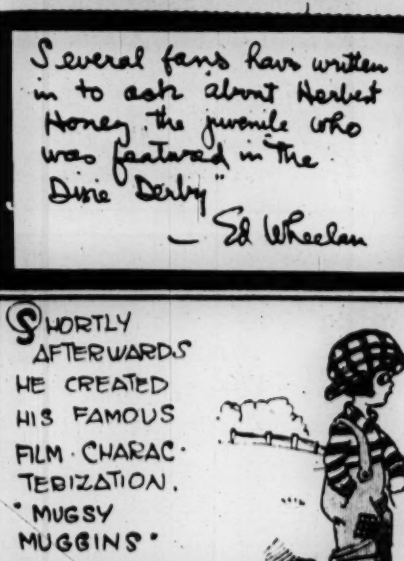 Several fans have written
in to ask about Herbert
Honey, the juvenile who
was featured in "The
Dixie Derby"
— Ed Wheelan
SHORTLY
AFTERWARDS
HE CREATED
HIS FAMOUS
FILM · CHARAC ·
TERIZATION,
"MUGSY
MUGGINS"